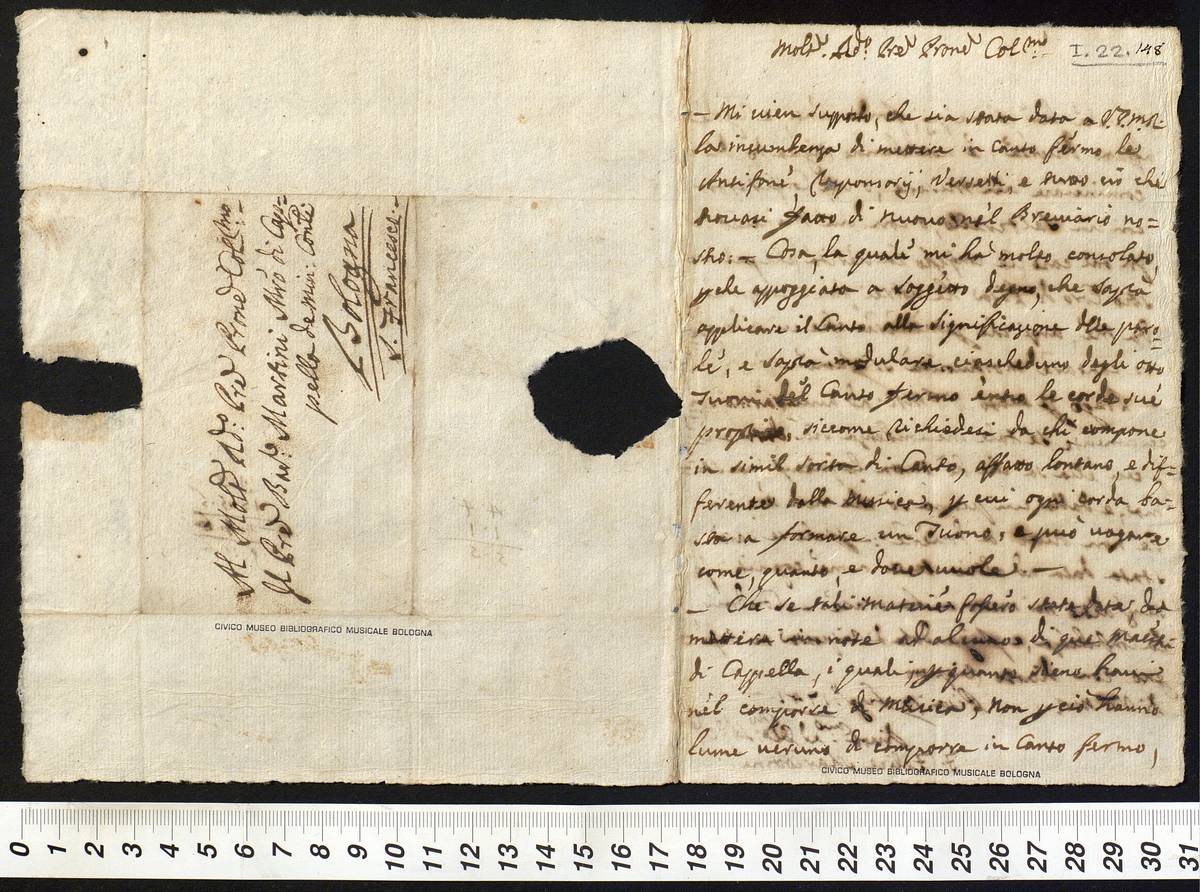 Al Molto Rdo: Pre Prone Colmo:-
Il Pre Bapta: Martini Mro di Cap-
pella de min: Conti:
Bologna
S. Francesco:-
CIVICO MUSEO BIBLIOGRAFICO MUSICALE BOLOGNA
Molto. Rdo: Pre Prone Colmo:
I. 22. 148
- Mi vien supposto, che sia stata data a V.P.M.R.
la incumbenza di mettere in Canto fermo le
Antifone, Risponsorij, Versetti, e tutto ciò che
trovasi fatto di nuovo nel Breviario no=
stro: - Cosa, la quale mi ha molto consolato,
pche appoggiata a soggetto degno, che saprà
applicare il Canto alla significazione dlle paro=
le, e saprà modulare ciascheduno degli otto
Tuoni del Canto fermo entro le corde sue
proprie, siccome richiedesi da chi compone
in simil sorta di Canto, affatto lontano, e dif=
ferente dalla Musica, p cui ogni corda ba=
sta a formare un Tuono, e può vagare
come, quanto, e dove vuole. -
- Che se tali materie fossero state date da
mettere in note ad alcuno di que' Maestri
di Cappella, i quali, p quanto sieno bravi
nel comporre di Musica, non p ciò hanno
lume veruno di comporre in Canto fermo,
CIVICO MUSEO BIBLIOGRAFICO MUSICALE BOLOGNA
0 1 2 3 4 5 6 7 8 9 10 11 12 13 14 15 16 17 18 19 20 21 22 23 24 25 26 27 28 29 30 31